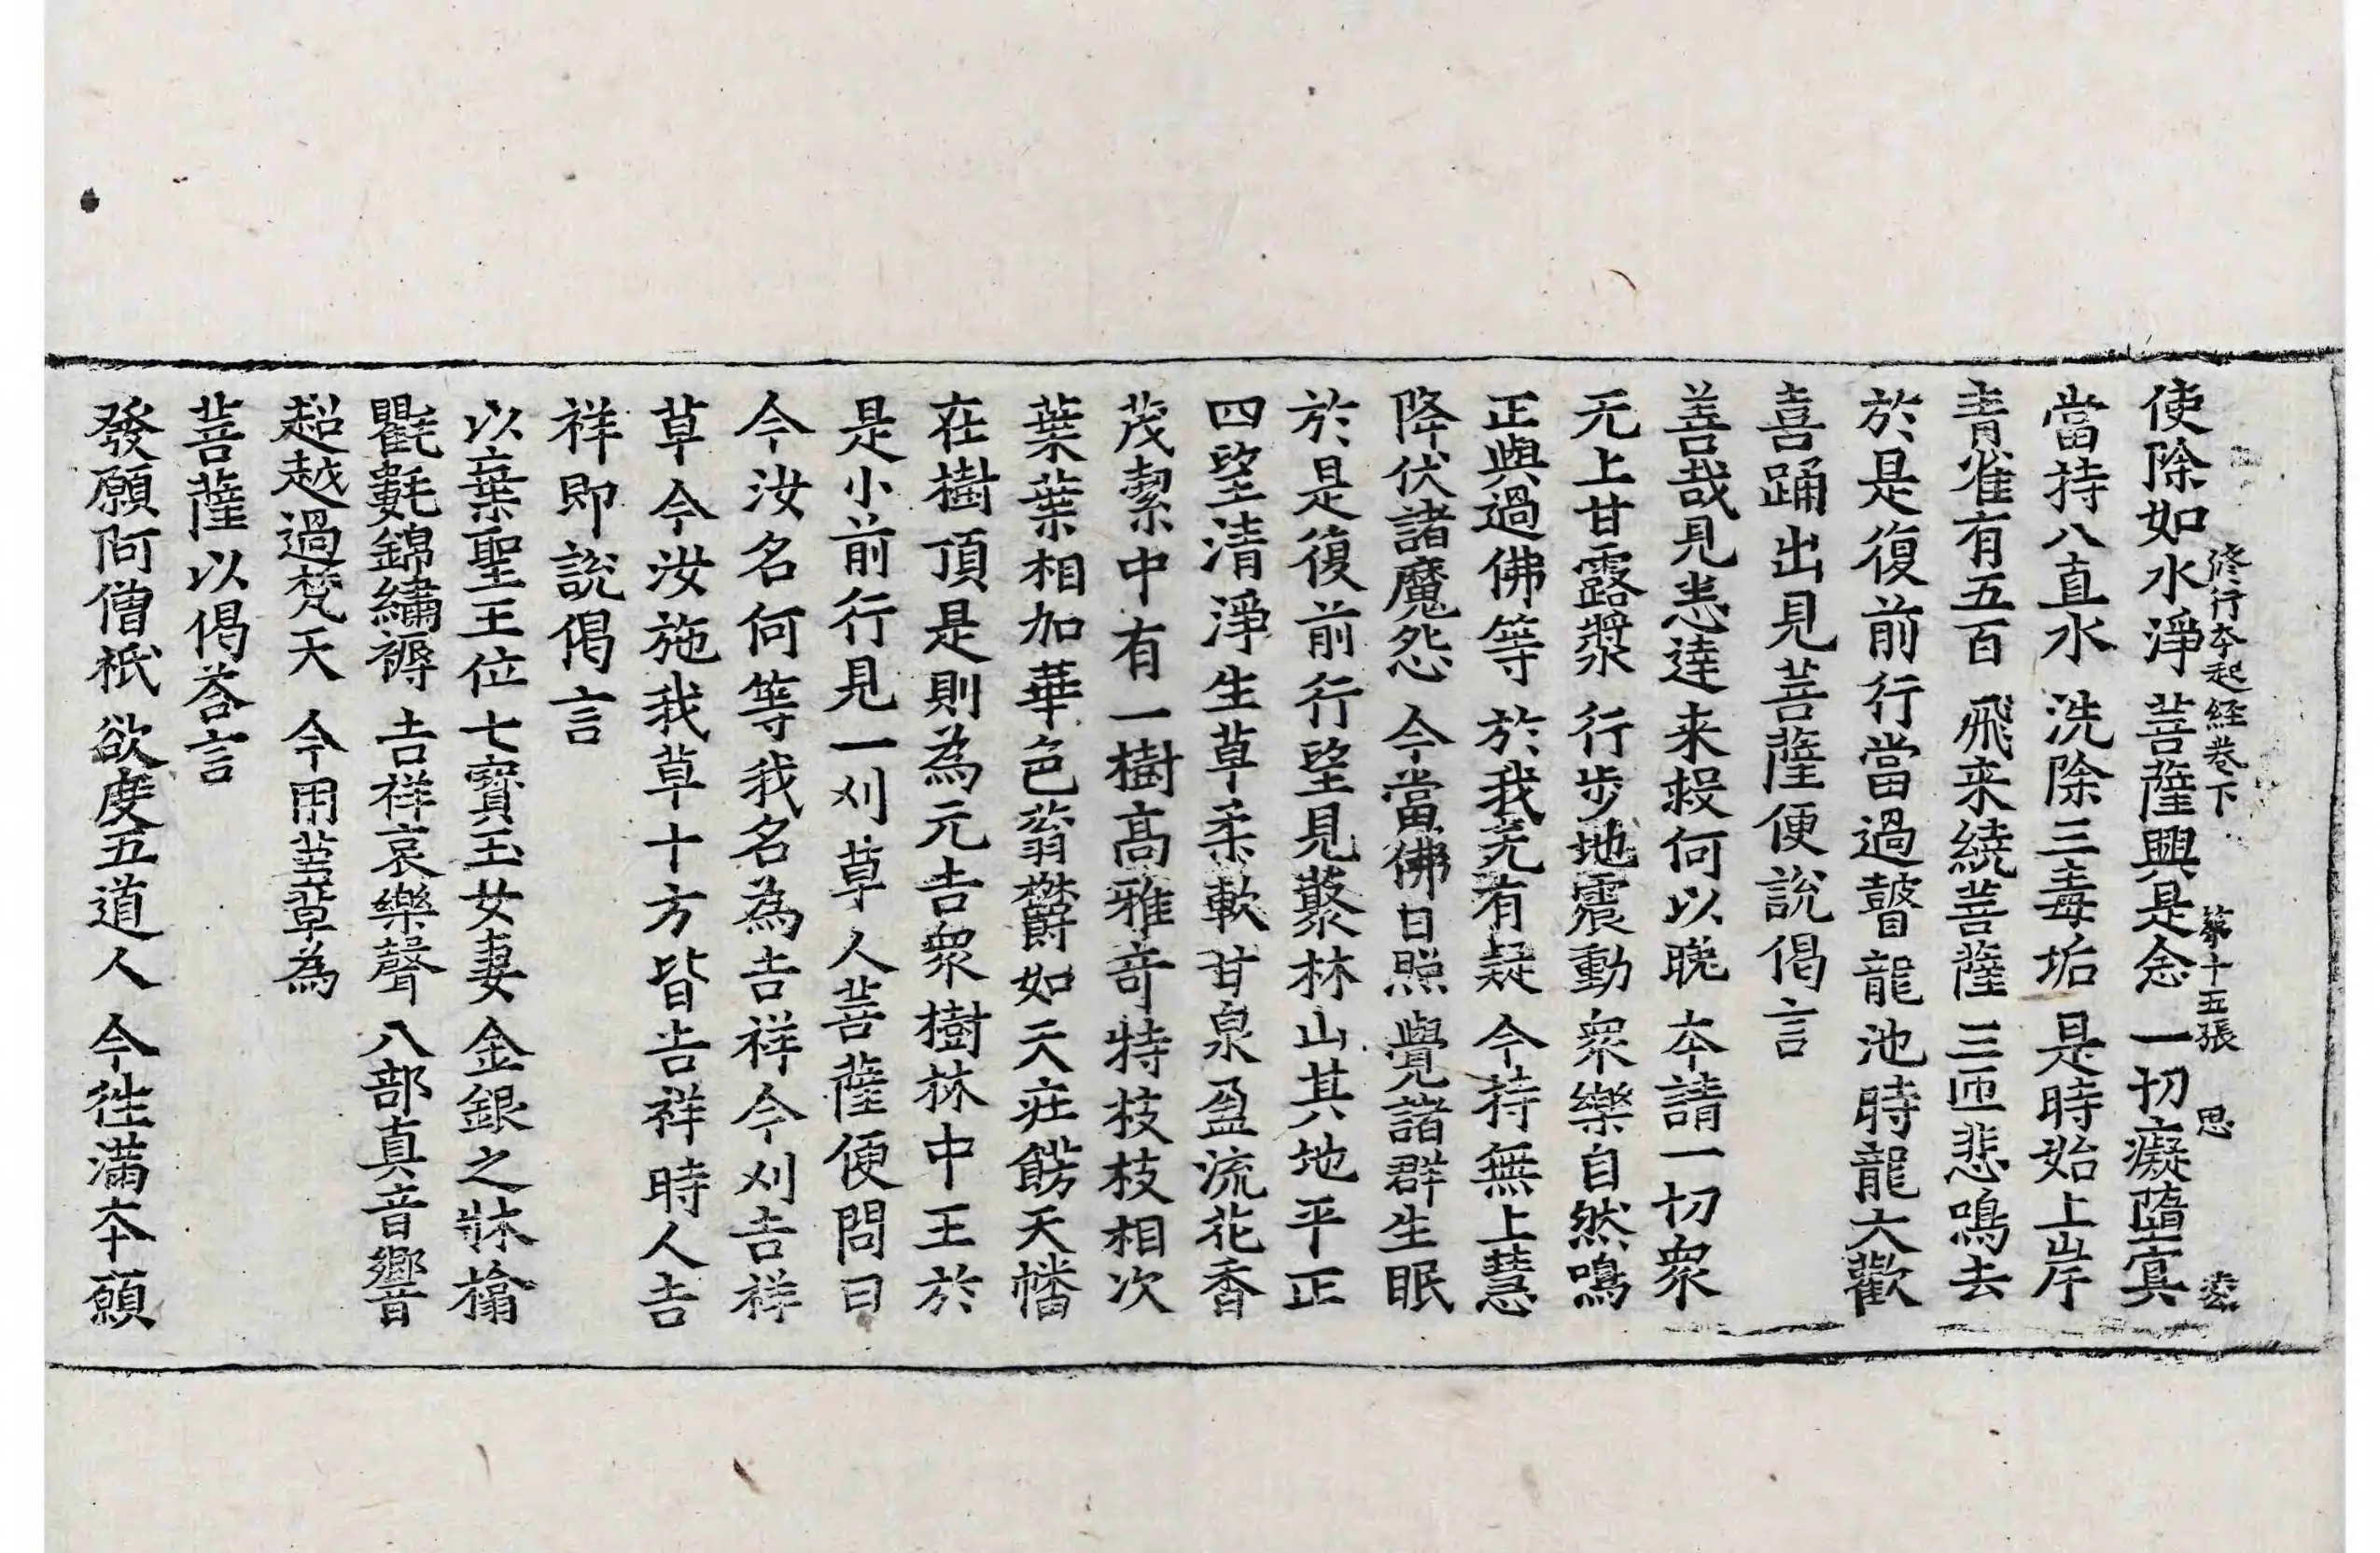 修行本起經卷下 第十五張 思
使除如水淨 菩薩興是念 一切癡墮冥
當持八直水 洗除三毒垢 是時始上岸
青雀有五百 飛来繞菩薩 三匝悲鳴去
於是復前行當過瞽龍池時龍大歡
喜踊出見菩薩便說偈言
善哉見悉達 来投何以晚 本請一切衆
无上甘露漿 行步地震動 衆樂自然鳴
正與過佛等 於我无有疑 今持無上慧
降伏諸魔怨 今當佛日照 覺諸群生眠
於是復前行望見叢林山其地平正
四望清淨生草柔軟甘泉盈流花香
茂潔中有一樹高雅奇特枝枝相次
葉葉相加華色蓊欝如天莊飾天幡
在樹頂是則為元吉衆樹林中王於
是小前行見一刈草人菩薩便問曰
今汝名何等我名為吉祥今刈吉祥
草今汝施我草十方皆吉祥時人吉
祥即說偈言
以棄聖王位 七寶玉女妻 金銀之牀榻
氍毹錦繡褥 吉祥哀樂聲 八部真音響
超越過梵天 今用芻草為
菩薩以偈荅言
發願阿僧祇 欲度五道人 今徃滿本願